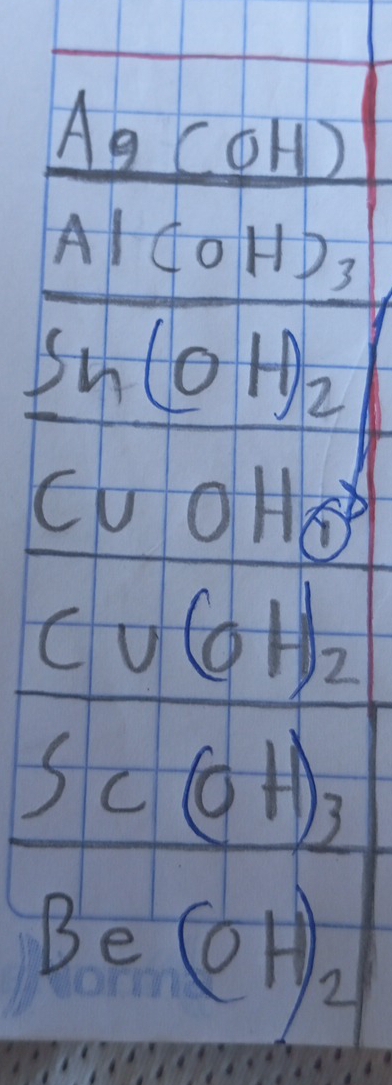 Ag (OH)
Al(OH)3
Sn(OH)2
Cu OH1
Cu(OH)2
Sc(OH)3
Be(OH)2
Norma